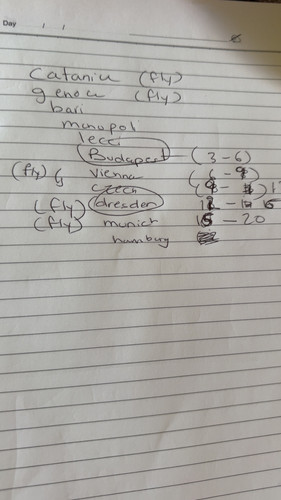 Day / /
Catania (fly)
genoa (fly)
bari
monopol
lecci
Budapest (3-6)
(fly) Vienna (6-9)
Czech
(fly) dresden
(fly) munich 15 - 20
hamburg